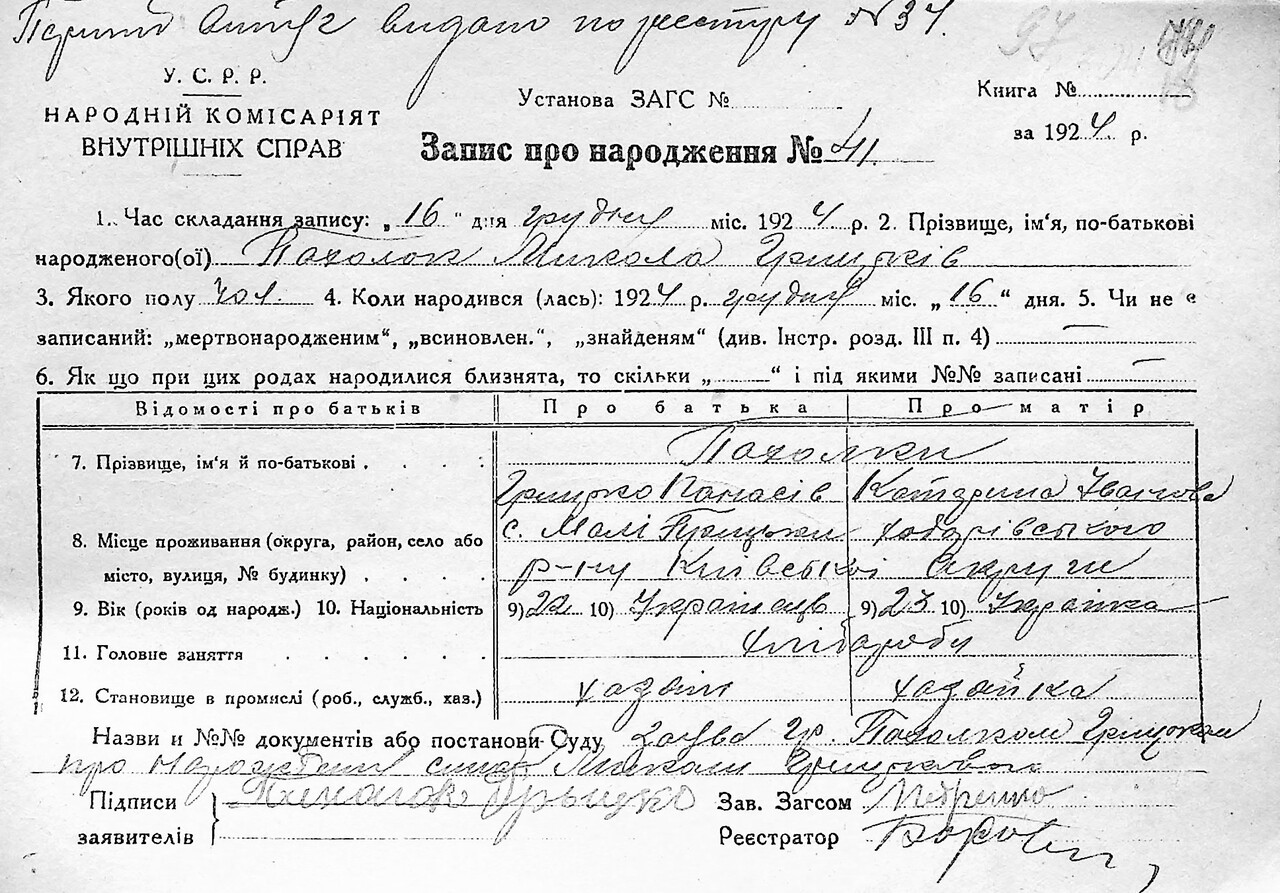 Перший витяг видано по реєстру №34.
У. С. Р. Р.
НАРОДНІЙ КОМІСАРІЯТ
ВНУТРІШНІХ СПРАВ
Установа ЗАГС №
Книга №
за 1924 р.
Запис про народження № 41.
1. Час складання запису: „16“ дня грудня міс. 1924 р. 2. Прізвище, ім‘я, по-батькові
народженого(ої) Пахолок Микола Грицьків
3. Якого полу чол. 4. Коли народився (лась): 1924 р. грудня міс. „16“ дня. 5. Чи не є
записаний: „мертвонародженим“, „всиновлен.“, „знайденям“ (див. Інстр. розд. III п. 4) —
6. Як що при цих родах народилися близнята, то скільки „—“ і під якими №№ записані —
Відомості про батьків Про батька Про матір
7. Прізвище, ім‘я й по-батькові Пахолки
Грицько Панасів Катерина Іванова
8. Місце проживання (округа, район, село або с. Малі Прицьки
місто, вулиця, № будинку) р-ну Київської Округи
9. Вік (років од народж.) 10. Національність 9) 22 10) Українець 9) 23 10) Українка
11. Головне заняття хлібороби
12. Становище в промислі (роб., служб., хаз.) хазяїн хазяйка
Назви и №№ документів або постанови Суду заява гр. Пахолком Грицьком
про народження сина Миколи
Підписи Грыцько Зав. Загсом Петренко
заявителів Реєстратор